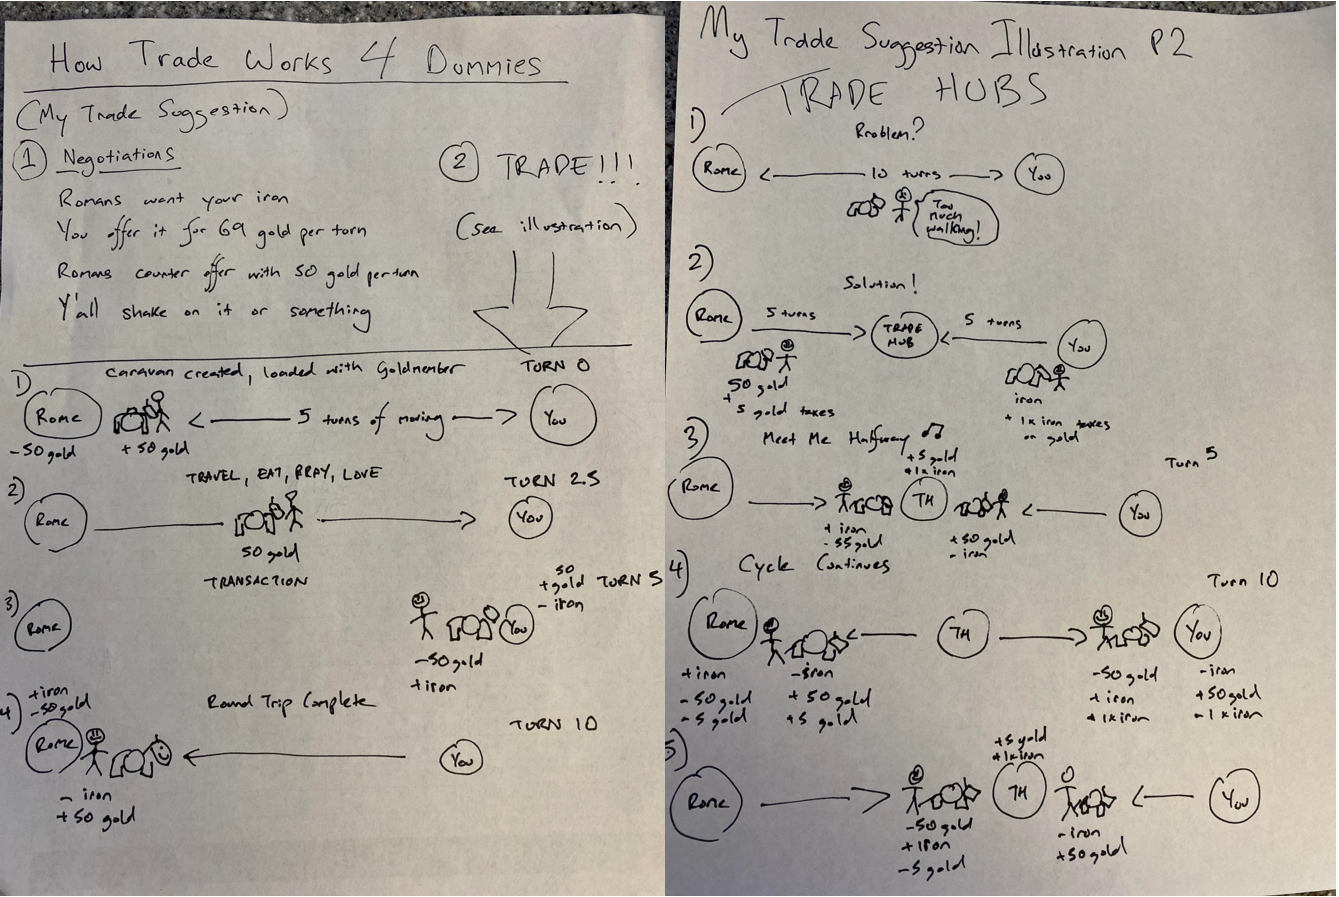 How Trade Works 4 Dummies
(My Trade Suggestion)
1 Negotiations
Romans want your iron
You offer it for 69 gold per turn
Romans counter offer with 50 gold per turn
Y'all shake on it or something
2 TRADE!!!
(see illustration)
1) caravan created, loaded with Goldmember TURN 0
Rome 5 turns of moving You
-50 gold +50 gold
2) TRAVEL, EAT, PRAY, LOVE TURN 2.5
Rome You
50 gold
TRANSACTION
3) Rome You TURN 5
50
+gold
- iron
-50 gold
+iron
4) Round Trip Complete TURN 10
+iron
-50 gold
Rome You
- iron
+50 gold
My Trade Suggestion Illustration P2
TRADE HUBS
1) Problem?
Rome 10 turns You
Too
much
walking!
2) Solution!
Rome 5 turns TRADE HUB 5 turns You
50 gold
+
5 gold taxes
iron
+ 1x iron taxes
on gold
3) Meet Me Halfway Turn 5
+5 gold
+1x iron
Rome TH You
+ iron
-55 gold
+50 gold
- iron
4) Cycle Continues Turn 10
Rome TH You
+iron
-50 gold
-5 gold
-iron
+50 gold
+5 gold
-50 gold
+iron
+1x iron
-iron
+50 gold
-1x iron
5) +5 gold
+1x iron
Rome TH You
-50 gold
+iron
-5 gold
-iron
+50 gold